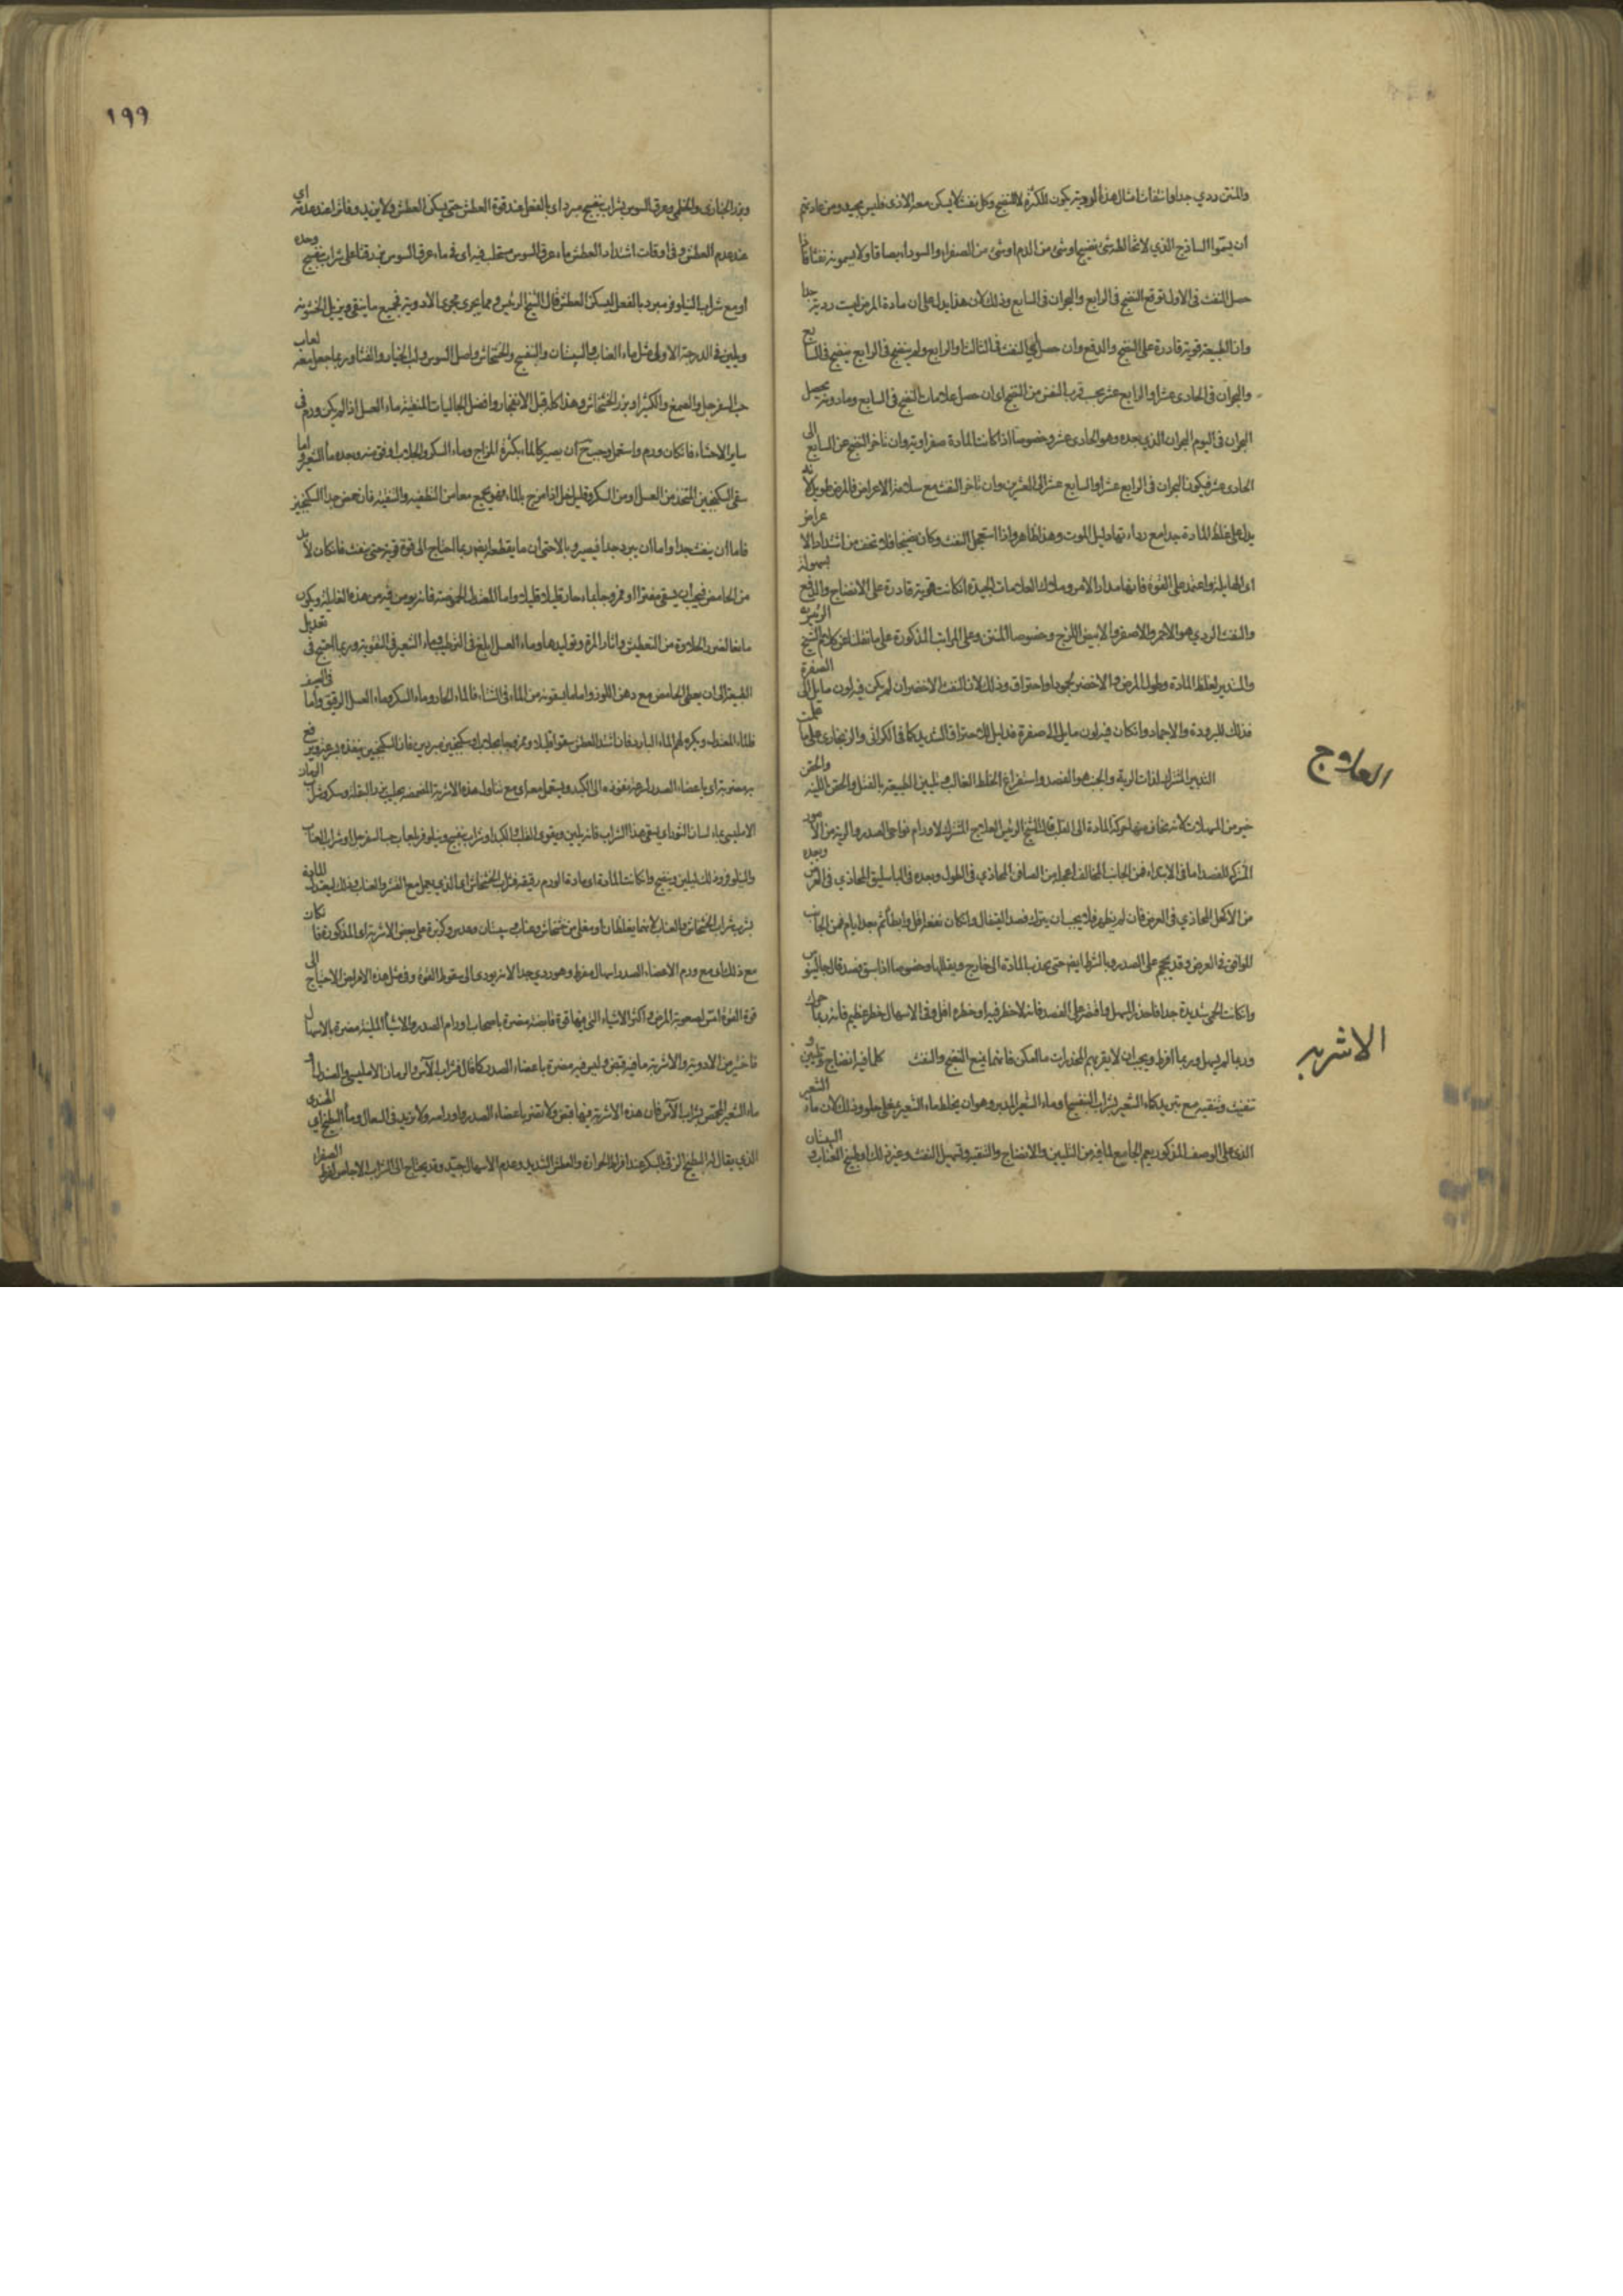 والمنتن ردي جدا وانتفاث امثال هذه الردية يكون للكثرة لا للنضج وكل نفث لا يسكن معه الاذى فليس بجيد ومن عادتهم
ان يسموا الساذج الذي لا تخالطه شئ نضيجا وشئ من الدم او شئ من الصفراء والسوداء بصاقا ولا يسمونه نفثا فاذا
حصل النفث في الاول توقع النضج في الرابع والبحران في السابع وذلك لان هذا يدل على ان مادة المرض ليست ردية جدا
وان الطبيعة قوية قادرة على النضج والدفع وان حصل النفث في الثالث او الرابع ولم ينضج في الرابع ينضج في السابع
والبحران في الحادى عشر او الرابع عشر بحسب قرب النفث من النضج اى ان حصل علامات النضج في السابع وما دونه يحصل
البحران في اليوم البحران الذي بعده وهو الحادى عشر وخصوصا اذا كانت المادة صفراوية وان تاخر النضج عن السابع الى
الحادى عشر فيكون البحران في الرابع عشر او السابع عشر الى العشرين وان تاخر النفث مع سلامة الاعراض فالمرض طويل لانه
يدل على غلظ المادة جدا مع رداءتها دليل الموت وهذا ظاهر واذا استعجل النفث وكان نضيجا فلا تخف من اشتداد الاعراض
اى الهايلة واعتمد على القوة فانها مدار الامر وملاك العلامات الجيدة ان كانت قوية قادرة على الانضاج والدفع بسهولة
والنفث الردي هو الاحمر والاصفر والابيض اللزج وخصوصا المنتن وعلى المراتب المذكورة على ما نقلنا عن كلام الشيخ الرئيس
والمستدير لغلظ المادة وطول المرض والاخضر لجمود او احتراق وذلك لان النفث الاخضر ان لم يكن فيه لون مايل الى الصفرة
فذلك للبرودة والاجماد وان كان فيه لون مايل الى صفرة فدليل الاحتراق الشديد كما في الكراثي والزنجاري على ما علمت
العلاج
التدبير المشترك لذات الرية والجنب هو الفصد واستفراغ الخلط الغالب وتليين الطبيعة بالفتل والحقن اللينة والحقن
خير من المسهلات لانه يخاف منها حركة المادة الى القلب قال الشيخ الرئيس العلاج المشترك لاورام نواحى الصدر والرية من الامور
المشتركة الفصد اما في الابتداء فمن الجانب المخالف اعنى من الصافن المحاذي في الطول وبعده في الباسليق المحاذي في العرض وبعده
من الاكحل المحاذي في العرض فان لم يظهر فلا يجب ان يترك فصد القيفال وان كان نفعه اقل وابطأ ثم بعد ايام فمن الجانب
الموافق في العرض وقد يحجم على الصدر وبالشرط ايضا حتى يجذب المادة الى خارج ويقللها وخصوصا اذا سبق فصد قال جالينوس
وان كانت الحمى شديدة جدا فاحذر المسهل واقتصر على الفصد فانه لا خطر فيه او خطره اقل وفي الاسهال خطر عظيم فانه ربما حرك
وربما لم يسهل وربما افرط ويجب ان لا يقربهم المخدرات ما امكن فانها تمنع النضج والنفث
الاشربة
كلما فيه انضاج وتليين و
تنفيث وتنقية مع تبريد كماء الشعير بشراب البنفسج او ماء الشعير المدبر وهو ان يخلط ماء الشعير بمغلى حلو وذلك لان ماء الشعير
الذي على الوصف المذكور نعم الجامع لما فيه من التليين والانضاج والتنقية وتسهيل النفث وغير ذلك او طبيخ العناب والسبستان
١٩٩
وبزر الخبازى والخطمى وعرق السوس بشراب بنفسج مبرد اى بالفعل عند قوة العطش حتى يسكن العطش ولا يزيد وفاترا عند عدمه اى
عند عدم العطش وفي اوقات اشتداد العطش ماء عرق السوس مستحلب فيه اى في ماء عرق السوس بزر قثا على شراب بنفسج وحده
او مع شراب النيلوفر مبرد بالفعل ليسكن العطش قال الشيخ الرئيس ومما يجرى مجرى الادوية جميع ما ينقي ويزيل الخشونة
ويلين في الدرجة الاولى مثل ماء العناب والسبستان والبنفسج والخشخاش واصل السوس ولب الخيار والقثا وربما جعل معه لعاب
حب السفرجل والصمغ والكثيرا وبزر الخشخاش وهذا كله قبل الانفجار وافضل الجاليات المنقية ماء العسل اذا لم يكن ورم في
ساير الاحشاء فان كان ورم واستعمل وجب ان يصير كالماء بكثرة المزاج وماء السكر والجلاب اوفق منه وبعده ماء الشعير واما
سقى السكنجبين المتخذ من العسل او من السكر وقليل خل اذا مزج بالماء فهو يجمع معا من التطفية والتنقية فان حمض جدا السكنجبين
فاما ان ينفث جدا واما ان يبرد جدا فيصير وبالا حتى ان ما يقطعه ايضا ربما احتاج الى قوة قوية حتى ينفث فان كان لا بد
من الحامض فيجب ان يسقى مفترا او ممزوجا بماء حار قليلا قليلا واما المعتدل الحموضة فانه يومن فيه من هذه الغايلة ويكون
مانعا لضرر الحلاوة من التعطيش واثارة المرة وتوليدها وماء العسل ابلغ في الترطيب وماء الشعير في التقوية وربما احتيج في تعديل
الطبيعة الى ان يعطى الحامض مع دهن اللوز واما ما يسقونه من الماء في الشتاء فالماء الحار وماء السكر وماء العسل الرقيق واما في الصيف
فالماء المعتدل ويكره لهم الماء البارد فان اشتد العطش سقوا قليلا وممزوجا بجلاب او سكنجبين مبردين فان السكنجبين ينفذ بسرعة ويدفع
بر مضرته اى باعضاء الصدر لسرعة نفوذه الى الكبد ويستعمل معه اى مع تناول هذه الاشربة المضمضة بحليب بزر البقلة وسكر وشراب الرمان
الامليسي بماء لسان الثور اى يسقى هذا الشراب فانه يلين ويقوى القلب والكبد او شراب بنفسج ونيلوفر بلعاب حب السفرجل او شراب العناب
والنيلوفر وذلك ليلين وينضج وان كانت المادة اى مادة الورم رقيقة فشراب الخشخاش اى الذي يعمل مع القشر والعناب وذلك ليعتدل المادة
بشرب شراب الخشخاش والعناب لانهما يغلظان او مغلى من خشخاش وعناب وسبستان وعدس وكزبرة على بعض الاشربة اى المذكورة فان كان
مع ذلك اى مع ورم الاعضاء الصدر اسهال مفرط وهو ردي جدا لانه يودى الى سقوط القوة وفي مثل هذه الامراض الاحتياج الى
قوة القوة امس لصعوبة المرض واكثر الاشياء التى فيها قوة قابضة مضرة باصحاب اورام الصدر والاشياء الملينة مضرة بالاسهال
فاختير من الادوية والاشربة ما فيه قبض وليس فيه مضرة باعضاء الصدر كما قال فشراب الآس والرمان الامليسي والصندل او
ماء الشعير المحمص بشراب الآس فان هذه الاشربة فيها قبض ولا تضر باعضاء الصدر واورامه ولا تزيد في السعال وماء البطيخ الهندي اى
الذي يقال له البطيخ الرقي بالسكر عند افراط الحرارة والعطش الشديد وعدم الاسهال جيد وقد يحتاج الى الشراب الاجاص لفرط الصفراء